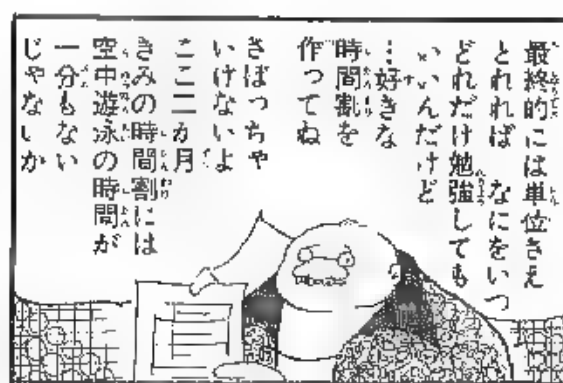 最終的には単位さえ
とれれば　なにをいつ
どれだけ勉強しても
いいんだけど
…好きな
時間割を
作ってね
さぼっちゃ
いけないよ
ここ二か月
きみの時間割には
空中遊泳の時間が
一分もない
じゃないか